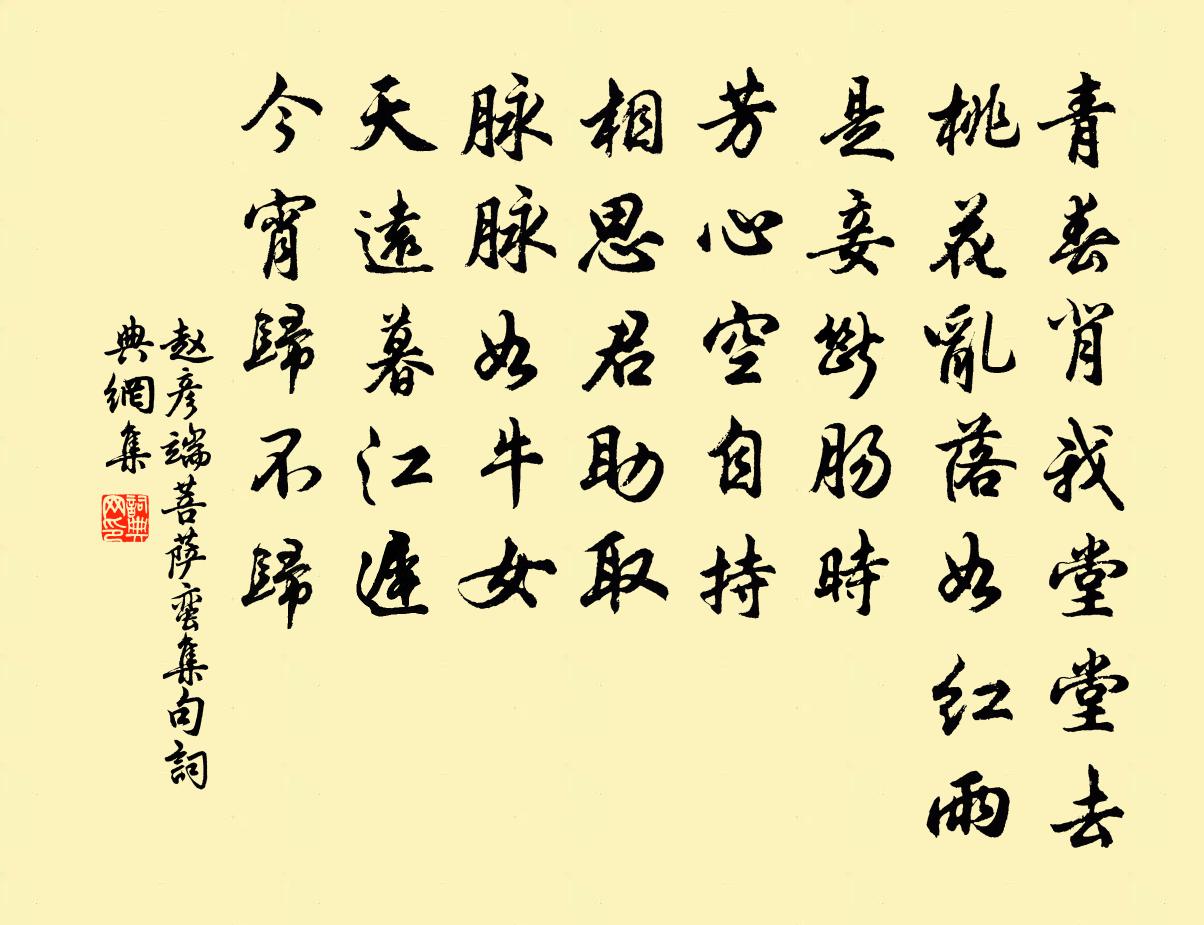 青春背我堂堂去
桃花亂落如紅雨
是妾斷腸時
芳心空自持
相思君助取
脉脉如牛女
天遠暮江遲
今宵歸不歸
赵彥端菩萨蛮集句詞
典網集
詞典网印